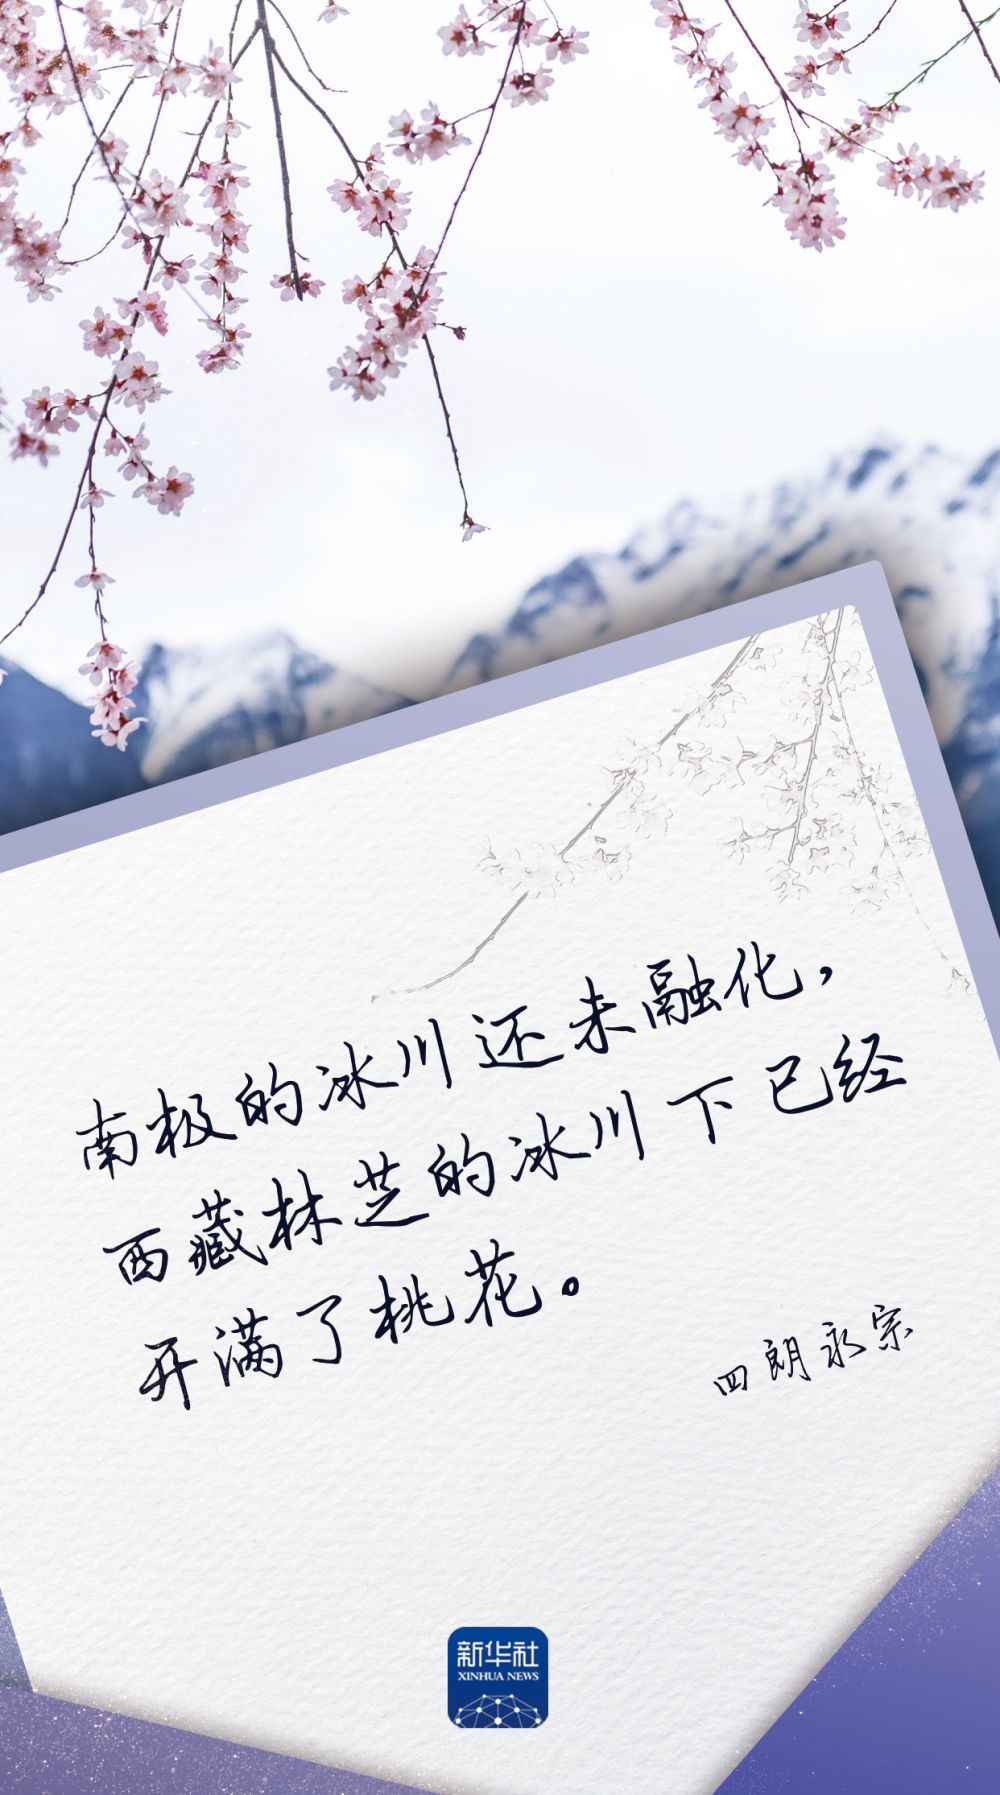 南极的冰川还未融化，
西藏林芝的冰川下已经
开满了桃花。
四朗永宗
新华社
XINHUA NEWS